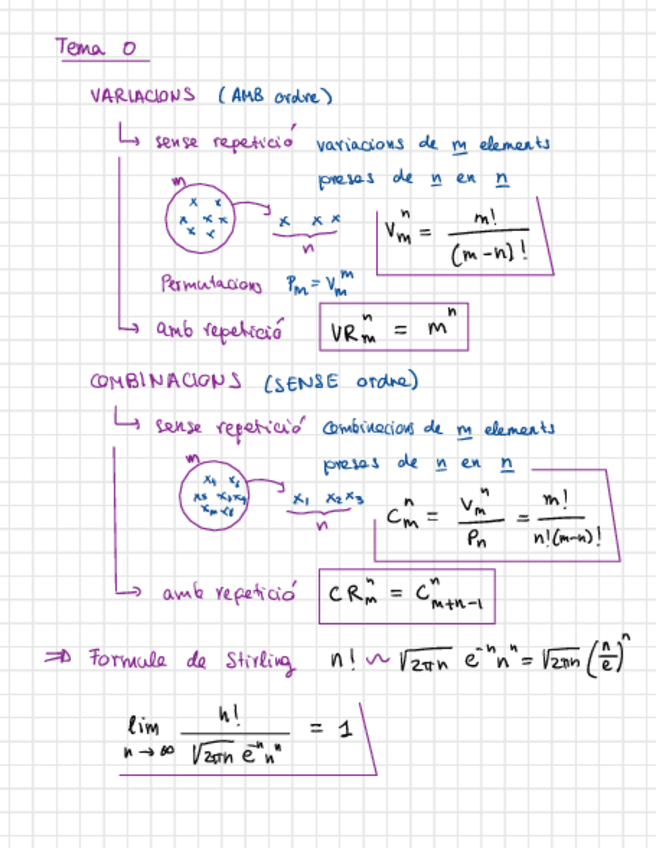 Tema 0
VARIACIONS (AMB ordre)
↳ sense repetició variacions de m elements
preses de n en n
m
x x x x x x x
x x x
n
V_m^n = m! / (m-n)!
Permutacions P_m = V_m^m
↳ amb repetició VR_m^n = m^n
COMBINACIONS (SENSE ordre)
↳ sense repetició Combinacions de m elements
preses de n en n
m
x₁ x₂ x₃
n
C_m^n = V_m^n / P_n = m! / n!(m-n)!
↳ amb repetició CR_m^n = C_{m+n-1}^n
⇒ Formula de Stirling n! ~ √2πn e^{-n} n^n = √2πn (n/e)^n
lim n→∞ n! / √2πn e^{-n} n^n = 1